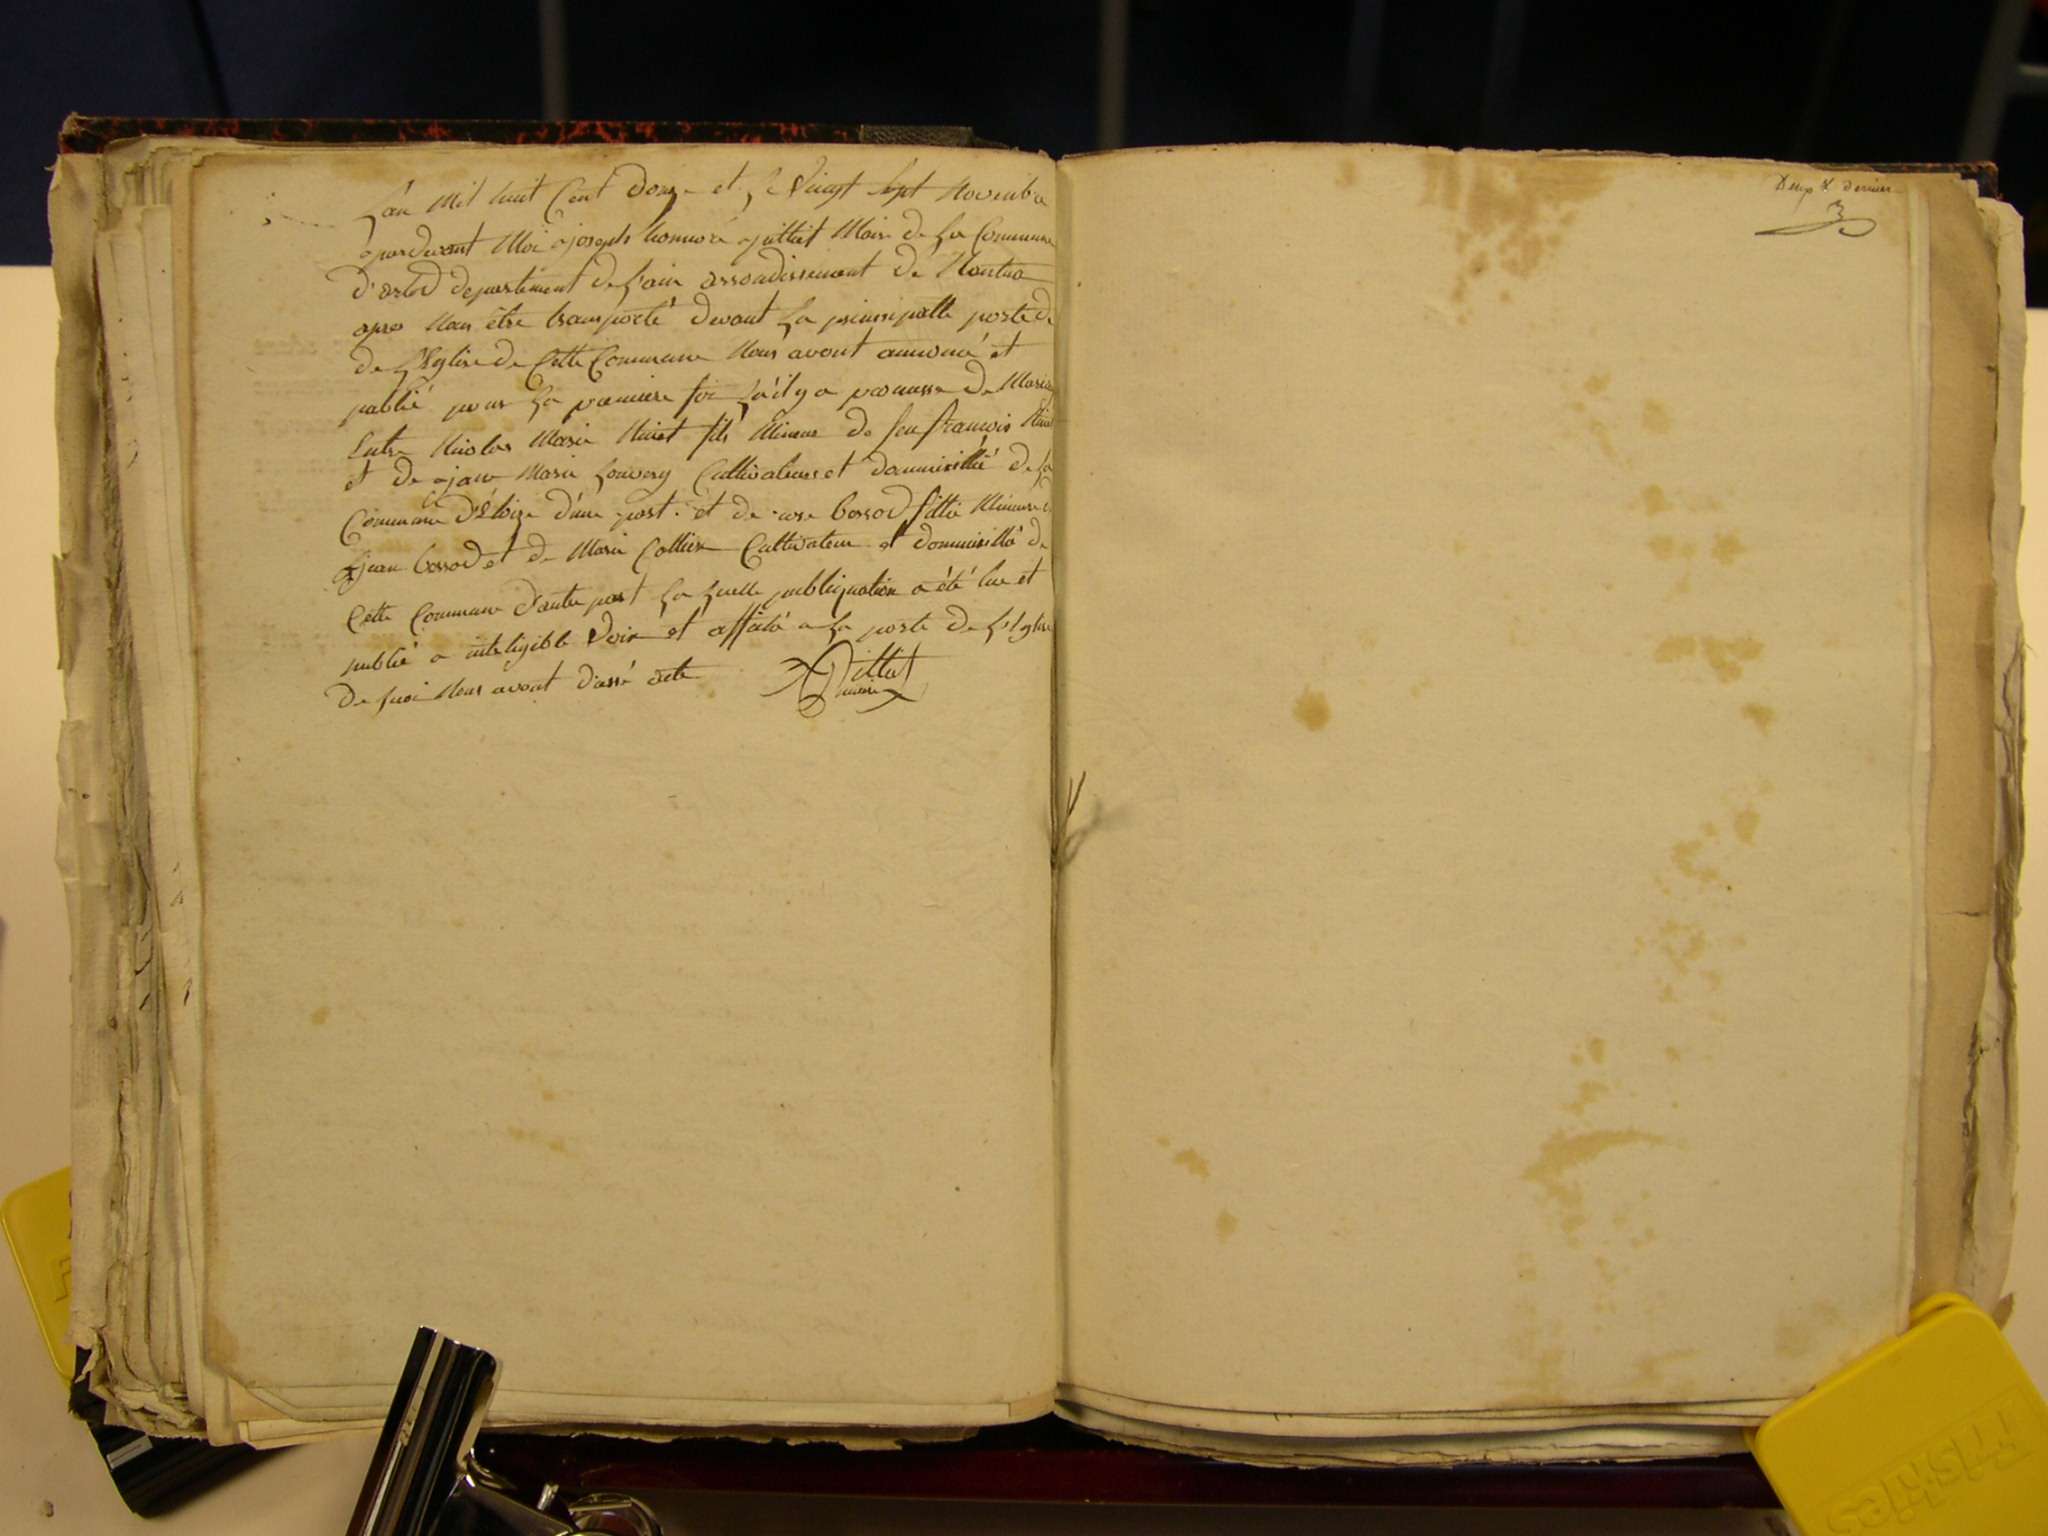 L'an Mil huit Cent Douze et le Vingt Sept Novembre
pardevant Moi joseph honnoré juillet Maire de La Commune
D' departement de L'ain arrondissement de Nantua
apres Nous être transporté devant La principalle porte de
de L'Eglise de Cette Commune Nous avont annoncé et
publié pour La premiere foi qu'il y a promesse de Mariage
Entre Nicolas Marie fils Mineur de feu françois
et de Marie Cultivateurs et dommicillié de la
Commune D'Eloize d'une part. et de rose bossod fillie Mineure de
jean bossod et de Marie Cultivateur et dommicillié de
Cette Commune d'autre part La quelle publiquation a été lue et
publié a inteligible Voix et affiché a La porte de L'Eglise
De quoi Nous avont acte
maire
Deux & dernier